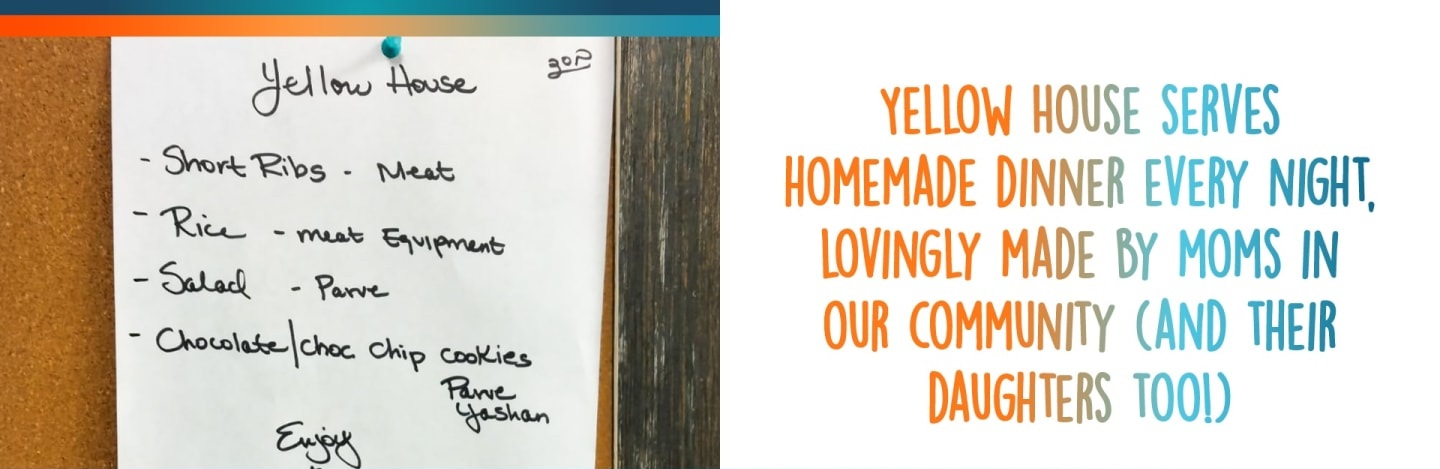 Yellow House
30P
- Short Ribs - Meat
- Rice - meat Equipment
- Salad - Parve
- Chocolate/choc chip cookies
Parve
Yashan
Enjoy
YELLOW HOUSE SERVES
HOMEMADE DINNER EVERY NIGHT,
LOVINGLY MADE BY MOMS IN
OUR COMMUNITY (AND THEIR
DAUGHTERS TOO!)